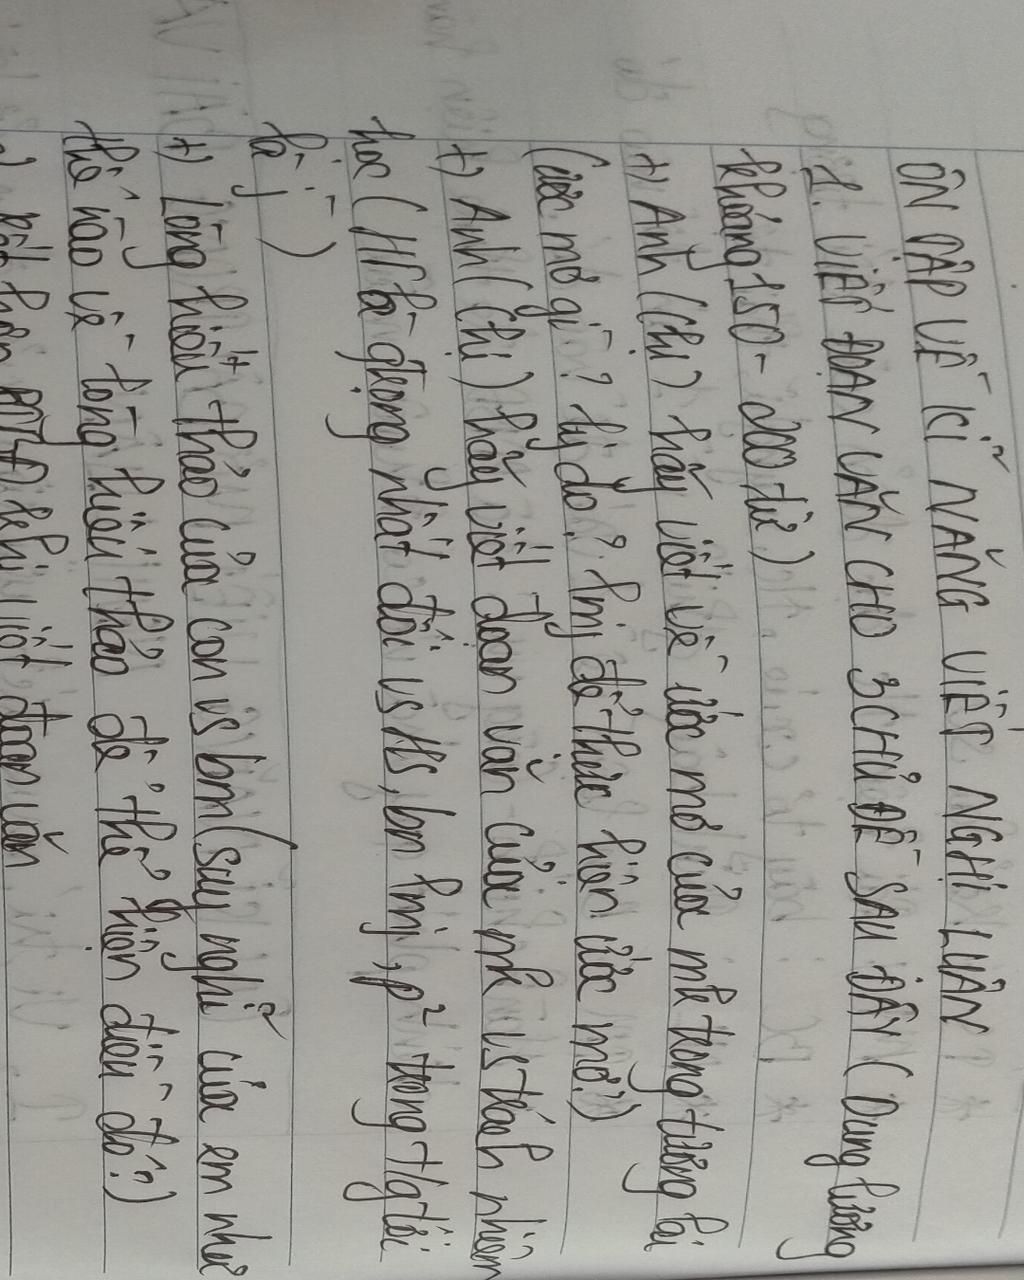 ÔN TẬP VỀ KĨ NĂNG VIẾT NGHỊ LUẬN
1. VIẾT ĐOẠN VĂN CHO 3 CHỦ ĐỀ SAU ĐÂY (Dung lượng
khoảng 150 - 200 từ)
+) Anh (Chị) hãy viết về ước mơ của mk trong tương lai
(ước mơ gì? lý do? lmj để thực hiện ước mơ?)
+) Anh (Chị) hãy viết đoạn văn của mk vs trách nhiệm
học (HT là qtrọng nhất đối vs Hs, bn lmj, p² trong t/g tới
là j)
+) Lòng hiếu thảo của con vs bm (suy nghĩ của em như
thế nào về lòng hiếu thảo để thể hiện điều đó?)
khi viết đoạn văn